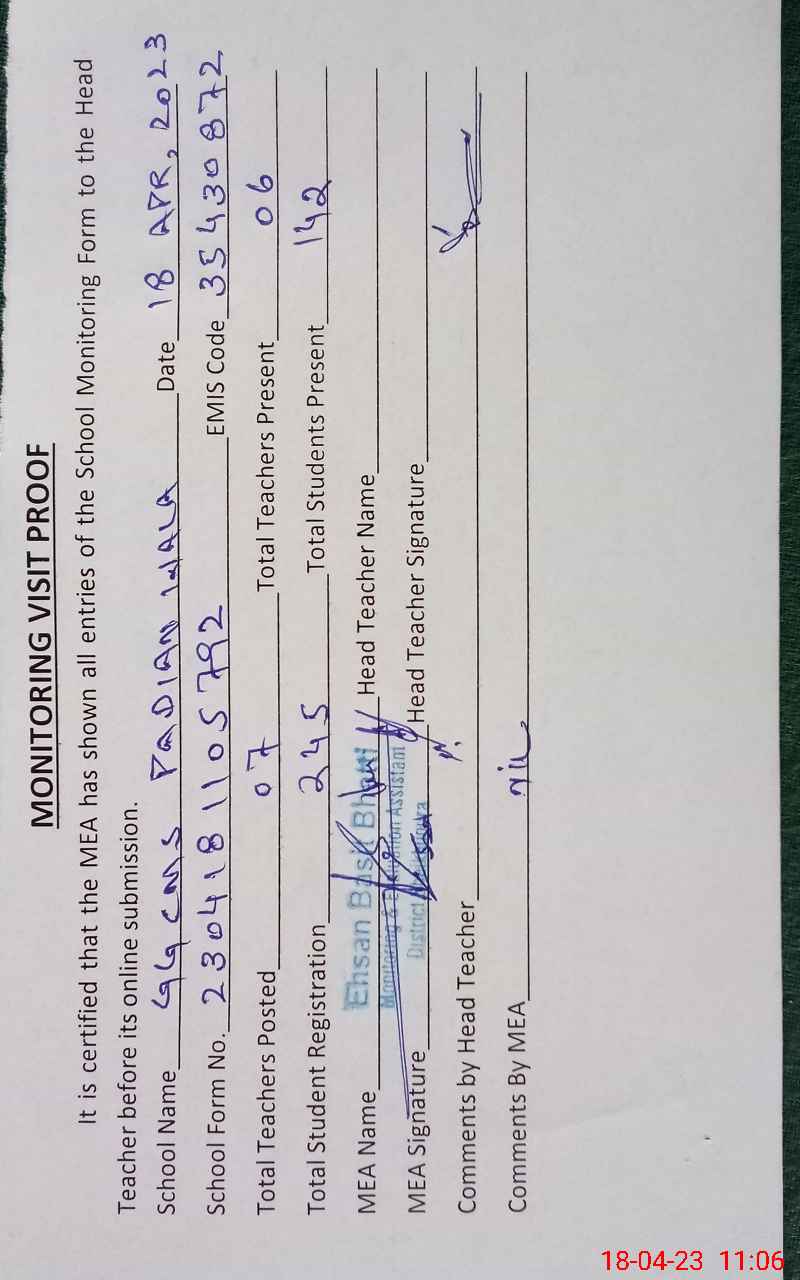 MONITORING VISIT PROOF
It is certified that the MEA has shown all entries of the School Monitoring Form to the Head
Teacher before its online submission.
School Name GG CMS PADIAN WALA Date 18 APR, 2023
School Form No. 230418 1105792 EMIS Code 35430872
Total Teachers Posted 07 Total Teachers Present 06
Total Student Registration 245 Total Students Present 142
MEA Name Ehsan Basit Bhatti Head Teacher Name
Monitoring & Evaluation Assistant
MEA Signature District Head Teacher Signature
Comments by Head Teacher
Comments By MEA Nil
18-04-23 11:06